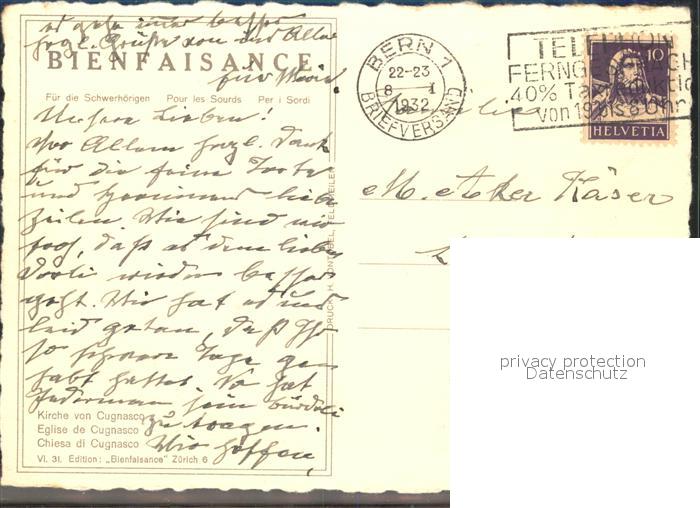 es geht immer besser
frgl. Grüße von uns Allen
BIENFAISANCE
für Marie.
Für die Schwerhörigen Pour les Sourds Per i Sordi
Unsere Lieben!
Vor Allem herzl. Dank
für die feine Torte
und liebe
Zeilen. Wie sind wir
froh, daß es dem lieben
Dorli wieder besser
geht. Wir hat es und
leid getan, daß Ihr
so schwere Tage ge-
habt hattet. So hat
Jedermann sein Bürdeli
zu tragen.
Wir hoffen,
Kirche von Cugnasco
Eglise de Cugnasco
Chiesa di Cugnasco
VI. 31. Edition: „Bienfaisance" Zürich 6
DRUCK H.
BERN 1
22-23
8 I
1932
BRIEFVERSAND
TELEPHON
FERNGESPRÄCH
40%
von 19 bis 8 Uhr
10
HELVETIA
Familie
M. Käser
privacy protection
Datenschutz